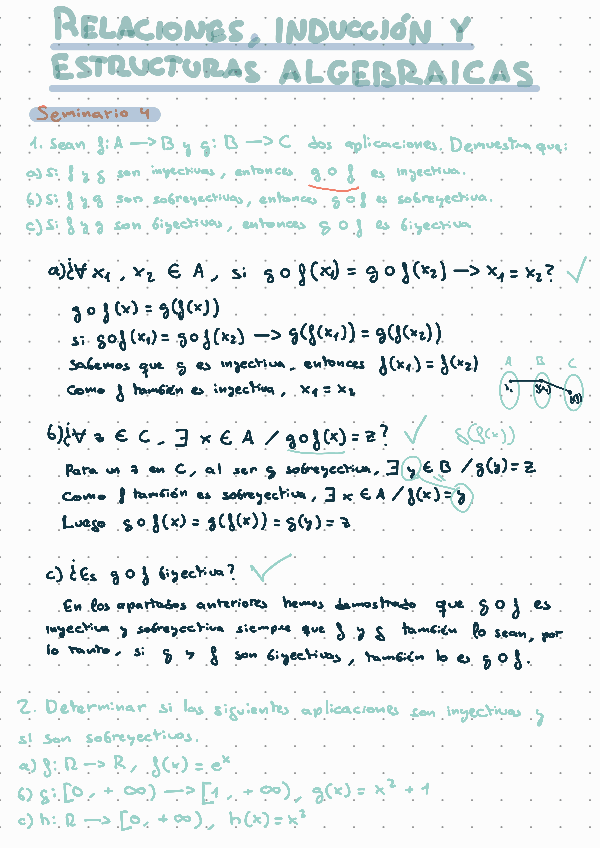 RELACIONES, INDUCCIÓN Y
ESTRUCTURAS ALGEBRAICAS
Seminario 4
1. Sean f: A → B y g: B → C dos aplicaciones. Demuestra que:
a) Si f y g son inyectivas, entonces g o f es inyectiva.
b) Si f y g son sobreyectivas, entonces g o f es sobreyectiva.
c) Si f y g son biyectivas, entonces g o f es biyectiva
a) ¿∀ x₁, x₂ ∈ A, si g o f(x₁) = g o f(x₂) → x₁ = x₂? ✓
g o f(x) = g(f(x))
si g o f(x₁) = g o f(x₂) → g(f(x₁)) = g(f(x₂))
Sabemos que g es inyectiva, entonces f(x₁) = f(x₂)
Como f también es inyectiva, x₁ = x₂
A B C
b) ¿∀ z ∈ C, ∃ x ∈ A / g o f(x) = z? ✓ g(f(x))
Para un z en C, al ser g sobreyectiva, ∃ y ∈ B / g(y) = z
Como f también es sobreyectiva, ∃ x ∈ A / f(x) = y
Luego g o f(x) = g(f(x)) = g(y) = z
c) ¿Es g o f biyectiva? ✓
En los apartados anteriores hemos demostrado que g o f es
inyectiva y sobreyectiva siempre que f y g también lo sean, por
lo tanto, si g y f son biyectivas, también lo es g o f.
2. Determinar si las siguientes aplicaciones son inyectivas y
si son sobreyectivas.
a) f: R → R, f(x) = eˣ
b) g: [0, + ∞) → [1, + ∞), g(x) = x² + 1
c) h: R → [0, + ∞), h(x) = x²